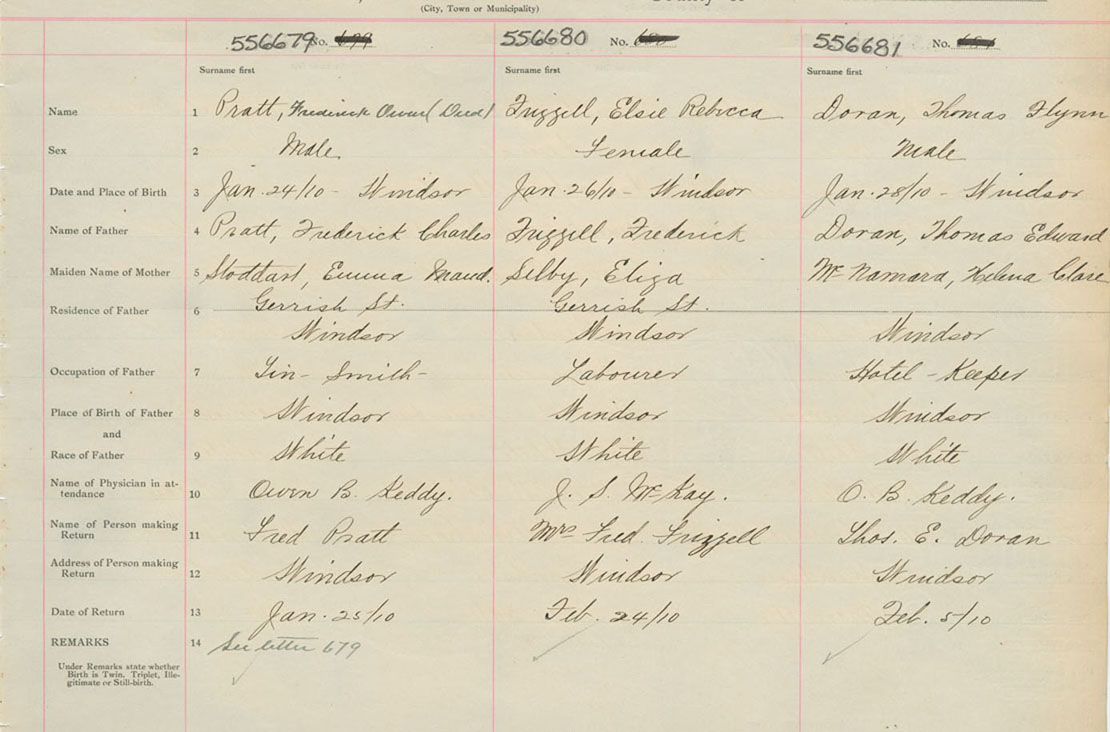 (City, Town or Municipality)
556679 No. 556680 No. 556681 No.
Surname first Surname first Surname first
Name 1 Pratt, Frederick Owen (Died) Frizzell, Elsie Rebecca Doran, Thomas Flynn
Sex 2 Male Female Male
Date and Place of Birth 3 Jan. 24/10 - Windsor Jan. 26/10 - Windsor Jan. 28/10 - Windsor
Name of Father 4 Pratt, Frederick Charles Frizzell, Frederick Doran, Thomas Edward
Maiden Name of Mother 5 Stoddart, Emma Maud. Selby, Eliza McNamara, Helena Clare
Gerrish St. Gerrish St.
Residence of Father 6
Windsor Windsor Windsor
Occupation of Father 7 Tin-Smith- Labourer Hotel-Keeper
Place of Birth of Father 8 Windsor Windsor Windsor
and
Race of Father 9 White White White
Name of Physician in at-
tendance 10 Owen B. Keddy. J. S. McKay. O. B. Keddy.
Name of Person making
Return 11 Fred Pratt Mrs Fred. Frizzell Thos. E. Doran
Address of Person making
Return 12 Windsor Windsor Windsor
Date of Return 13 Jan. 25/10 Feb. 24/10 Feb. 5/10
REMARKS 14 See letter 679
Under Remarks state whether
Birth is Twin. Triplet, Ille-
gitimate or Still-birth.